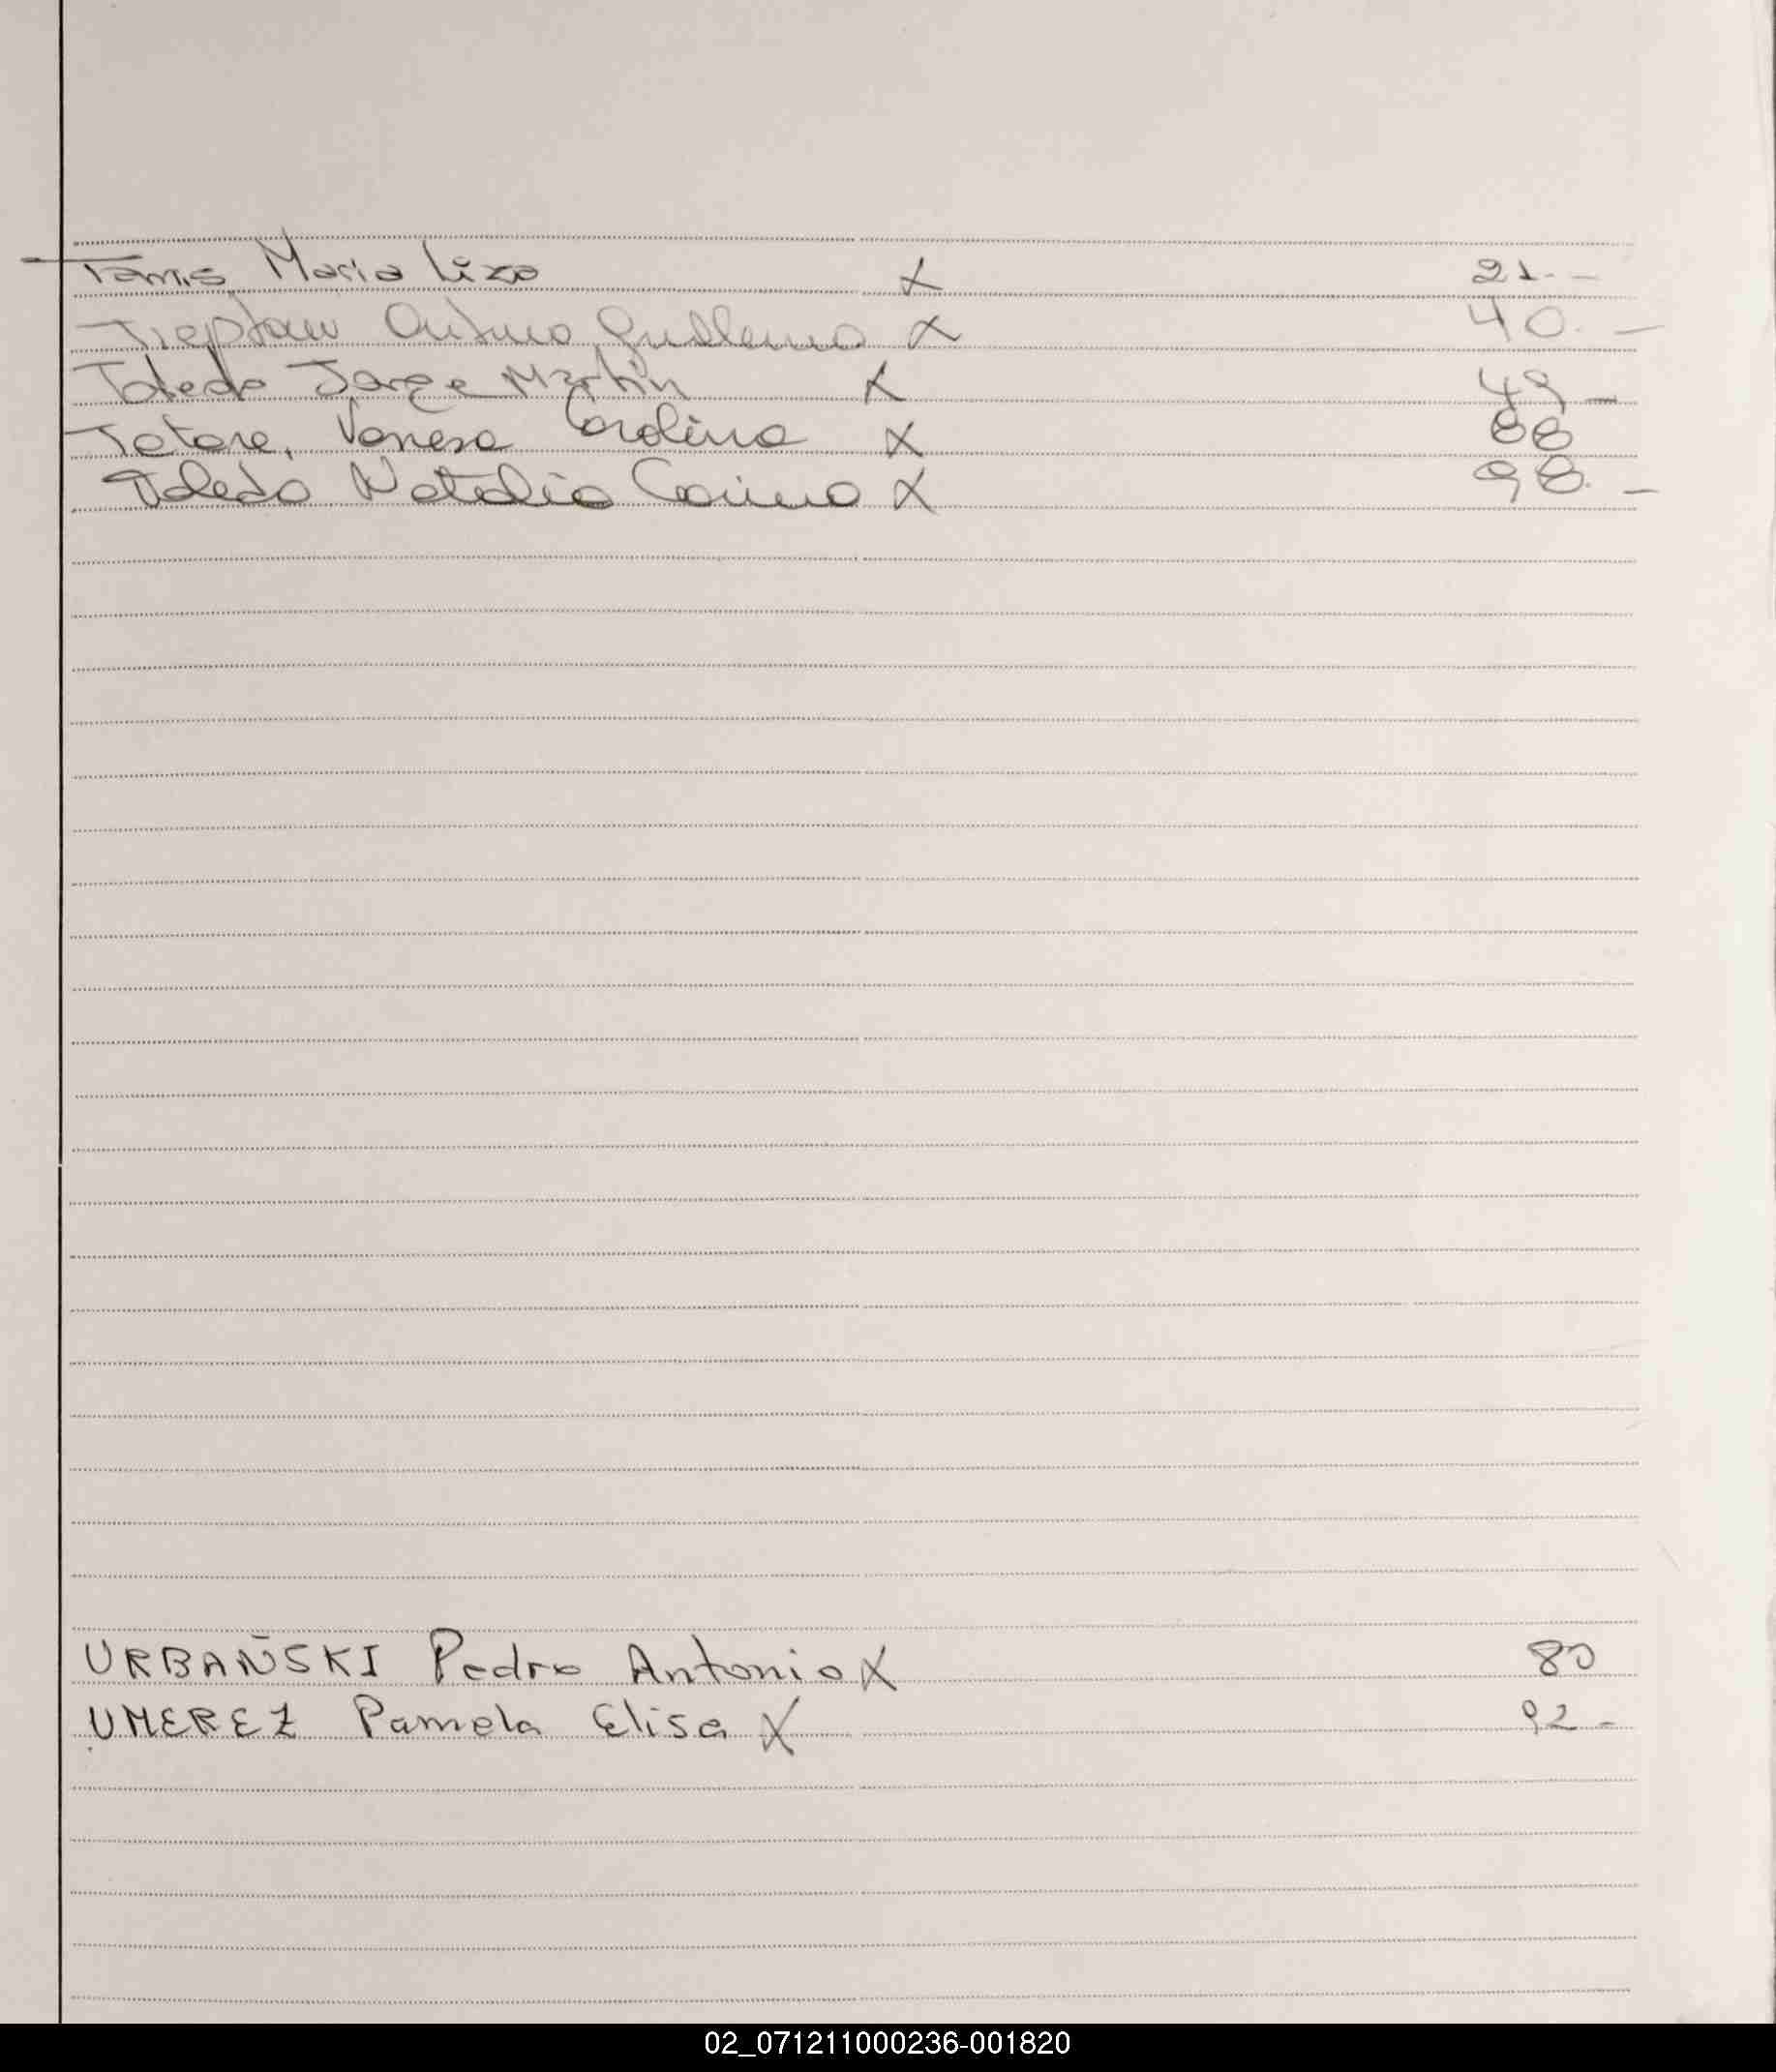 Tamis, Maria Liza X 21.-
Treptow Arturo Guillermo X 40.-
Toledo Jorge Martín X 49-
Totore, Vanesa Carolina X 88
Toledo Natalia Corina X 98.-
URBAÑSKI Pedro Antonio X 80
UMEREZ Pamela Elisa X 92-
02_071211000236-001820